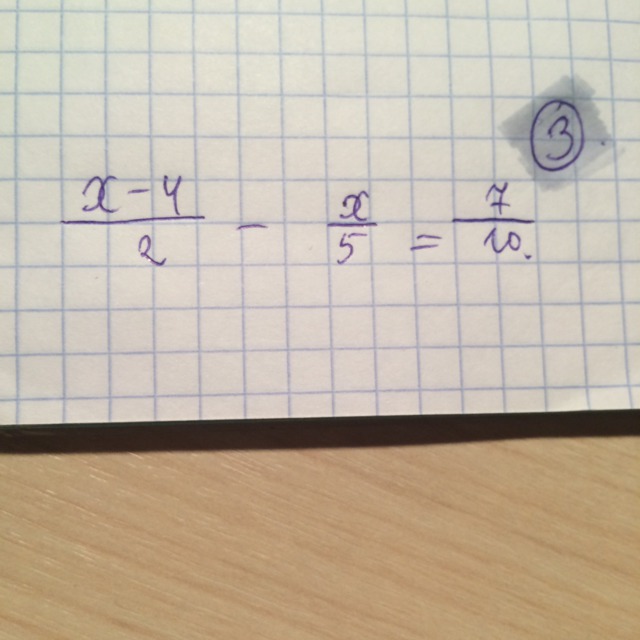 ③
x - 4 / 2 - x / 5 = 7 / 10.